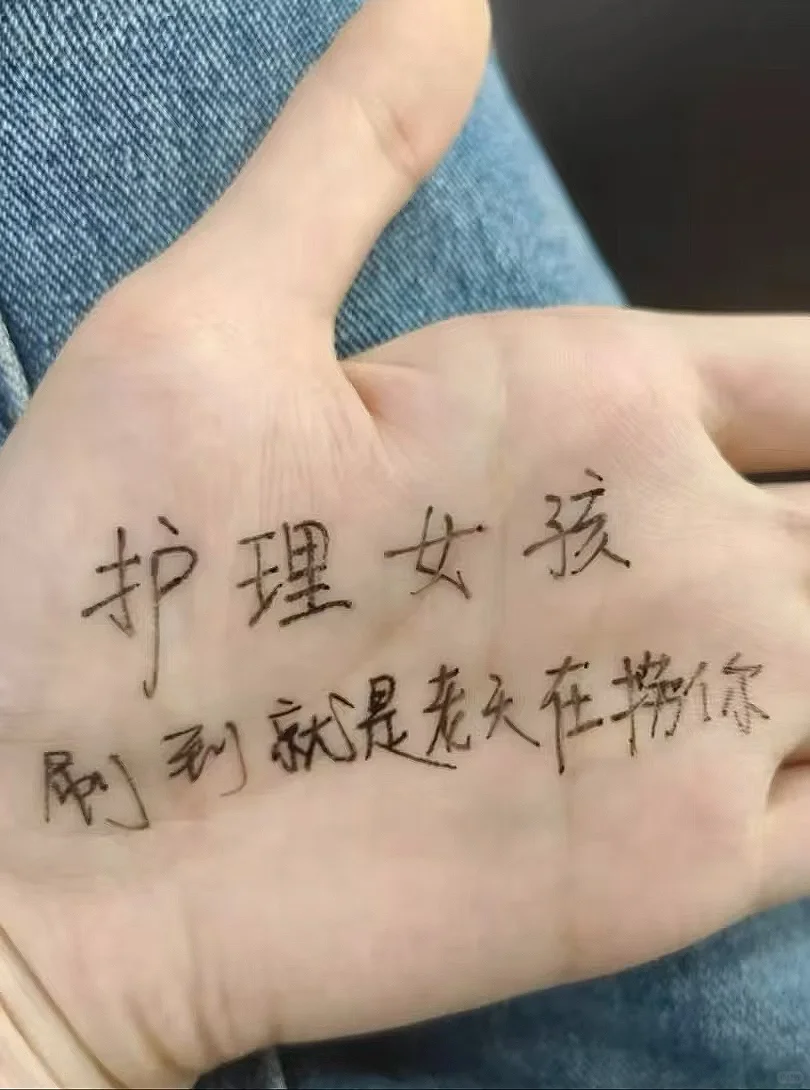 护理女孩
刷到就是老天在捞你